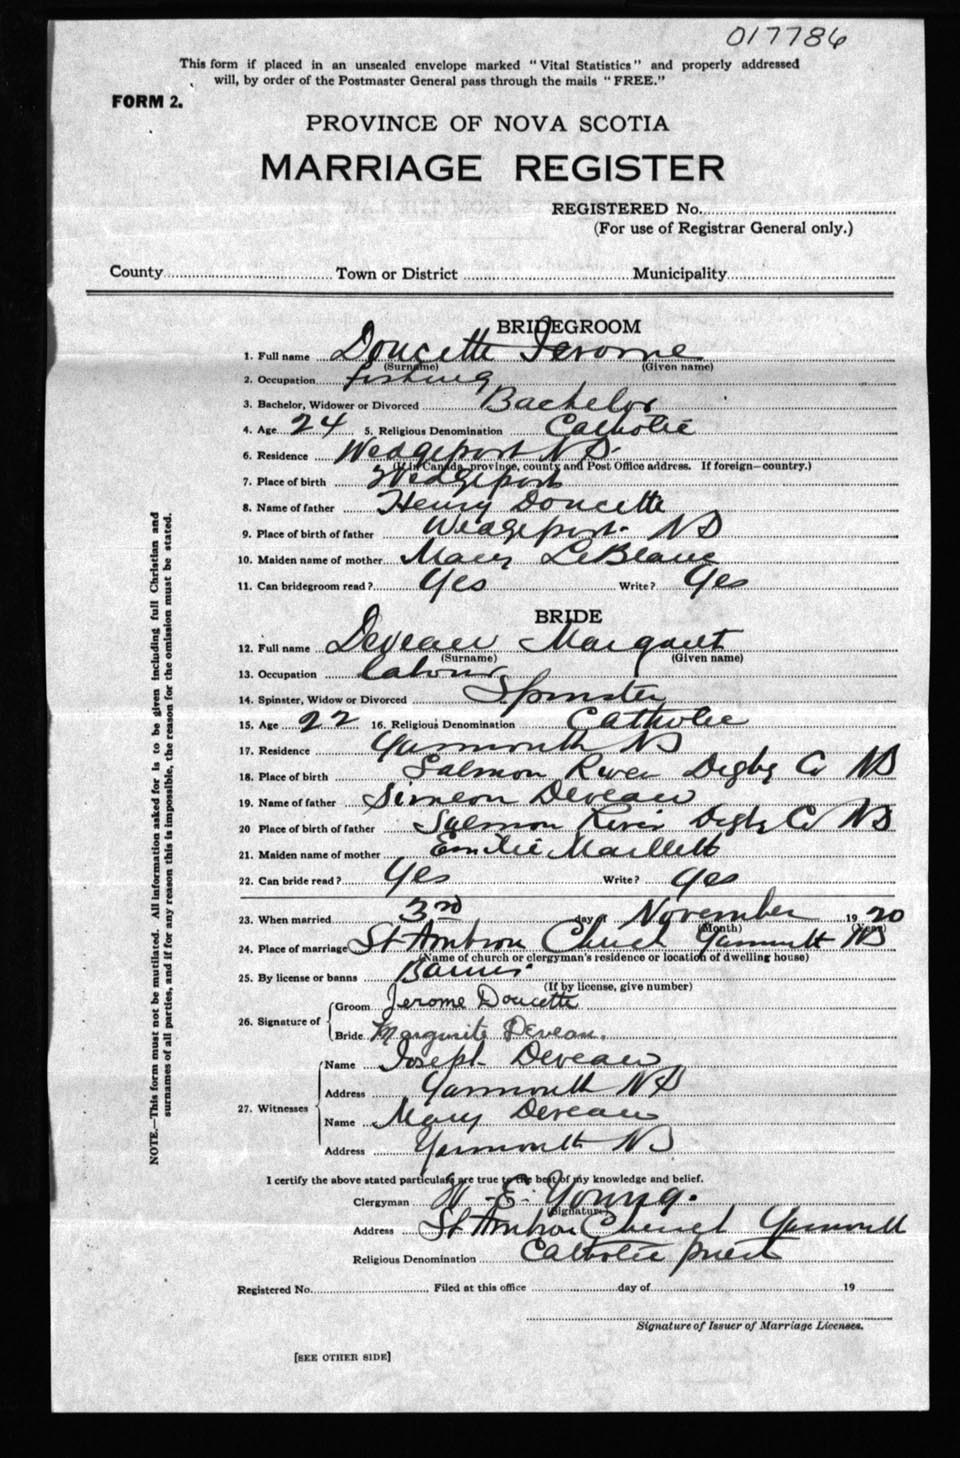 017786
This form if placed in an unsealed envelope marked "Vital Statistics" and properly addressed
will, by order of the Postmaster General pass through the mails "FREE."
FORM 2.
PROVINCE OF NOVA SCOTIA
MARRIAGE REGISTER
REGISTERED No.
(For use of Registrar General only.)
County Town or District Municipality
BRIDEGROOM
1. Full name Doucette Jerome
(Surname) (Given name)
2. Occupation fishing
3. Bachelor, Widower or Divorced Bachelor
4. Age 24 5. Religious Denomination Catholic
6. Residence Wedgeport NS.
(If in Canada, province, county and Post Office address. If foreign—country.)
7. Place of birth Wedgeport
8. Name of father Henry Doucette
9. Place of birth of father Wedgeport NS
10. Maiden name of mother Mary LeBlanc
11. Can bridegroom read? Yes Write? Yes
BRIDE
12. Full name Deveau Margaret
(Surname) (Given name)
13. Occupation labour
14. Spinster, Widow or Divorced Spinster
15. Age 22 16. Religious Denomination Catholic
17. Residence Yarmouth NS
18. Place of birth Salmon River Digby Co NS
19. Name of father Simeon Deveau
20 Place of birth of father Salmon River Digby Co NS
21. Maiden name of mother Emilie Maillett
22. Can bride read? Yes Write? Yes
23. When married 3rd day of November 1920
(Month) (Year)
24. Place of marriage St Ambron Church Yarmouth NS
(Name of church or clergyman's residence or location of dwelling house)
25. By license or banns Banns.
(If by license, give number)
26. Signature of
Groom Jerome Doucette
Bride Margurite Deveau.
27. Witnesses
Name Joseph Deveau
Address Yarmouth NS
Name Mary Deveau
Address Yarmouth NS
I certify the above stated particulars are true to the best of my knowledge and belief.
Clergyman W. E. Young.
(Signature)
Address St Ambron Church Yarmouth
Religious Denomination Catholic priest
Registered No. Filed at this office day of 19
Signature of Issuer of Marriage Licenses.
[SEE OTHER SIDE]
NOTE.—This form must not be mutilated. All information asked for is to be given including full Christian and
surnames of all parties, and if for any reason this is impossible, the reason for the omission must be stated.